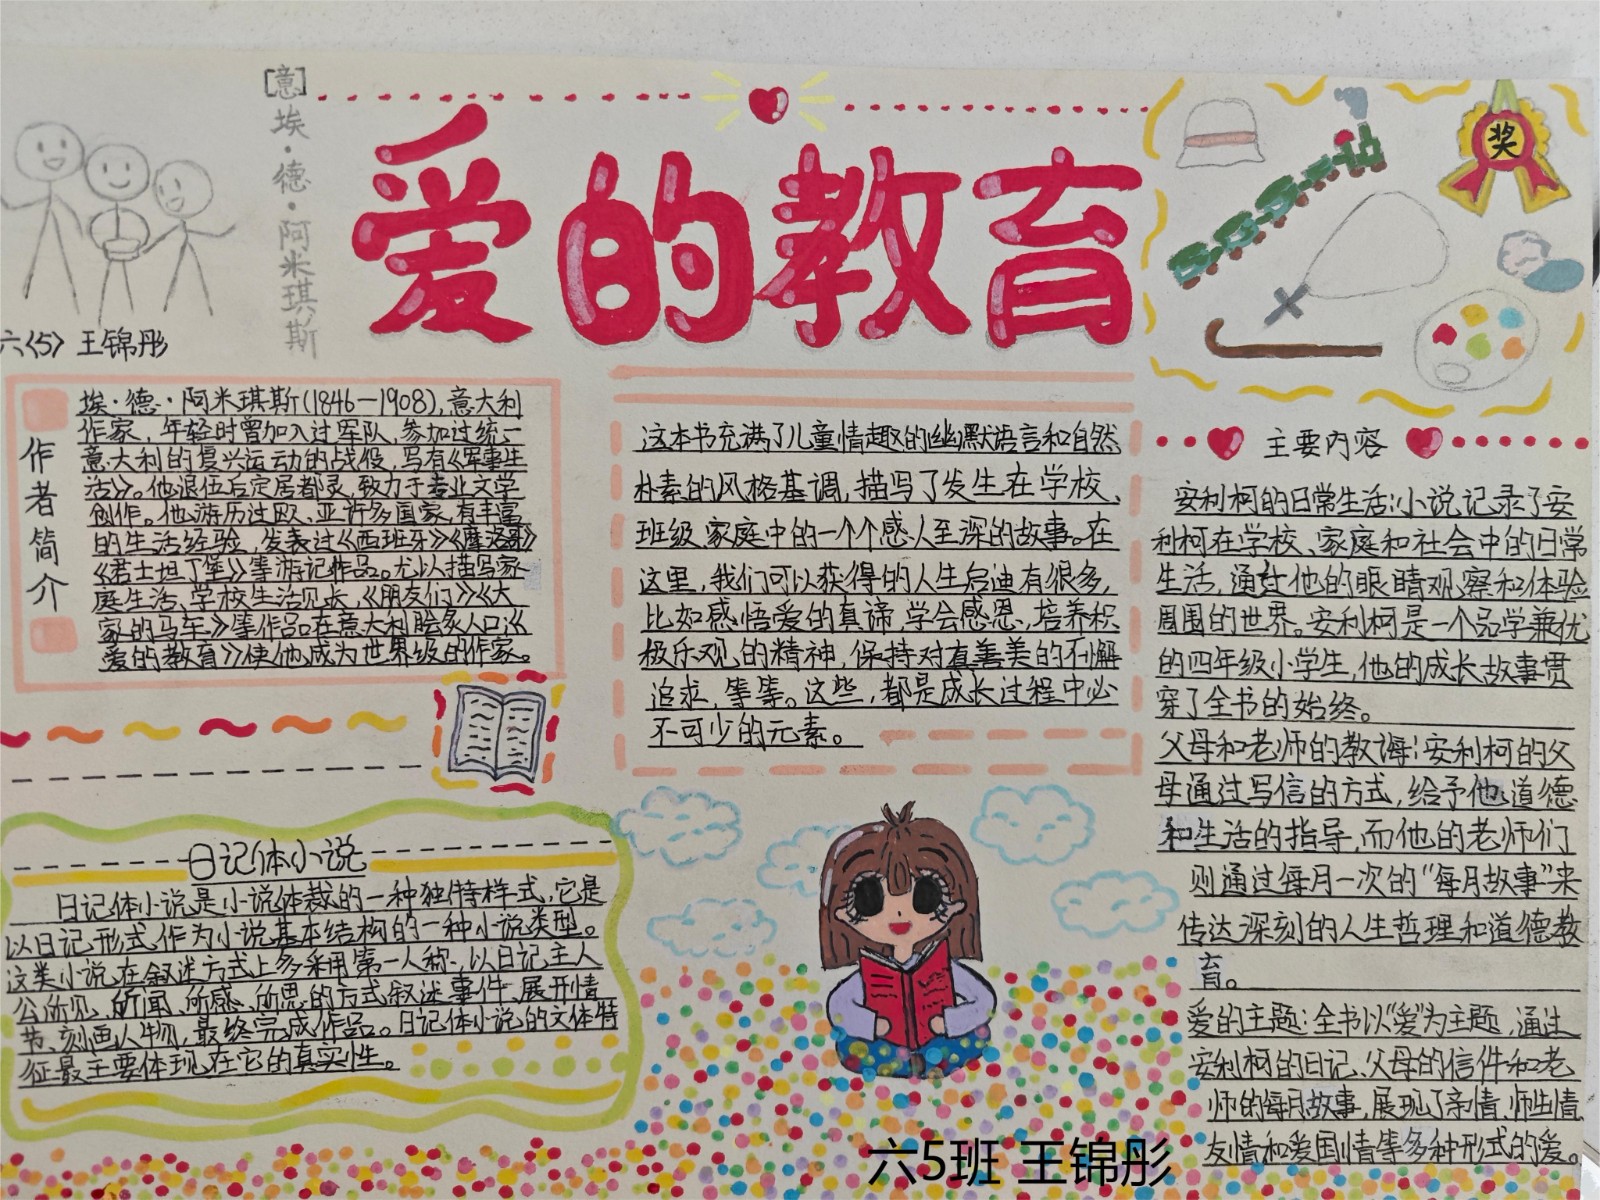 [意]埃·德·阿米琪斯
爱的教育
奖
六〈5〉王锦彤
作者简介
埃·德·阿米琪斯(1846—1908),意大利
作家,年轻时曾加入过军队,参加过统一
意大利的复兴运动的战役,写有《军事生
活》。他退伍后定居都灵,致力于专业文学
创作。他游历过欧、亚许多国家,有丰富
的生活经验,发表过《西班牙》《摩洛哥》
《君士坦丁堡》等游记作品。尤以描写家
庭生活、学校生活见长,《朋友们》《大
家的马车》等作品在意大利脍炙人口,《
爱的教育》使他成为世界级的作家。
日记体小说
日记体小说是小说体裁的一种独特样式,它是
以日记形式作为小说基本结构的一种小说类型。
这类小说在叙述方式上多采用第一人称,以日记主人
公所见、所闻、所感、所思的方式叙述事件、展开情
节、刻画人物,最终完成作品。日记体小说的文体特
征最主要体现在它的真实性。
这本书充满了儿童情趣的幽默语言和自然
朴素的风格基调,描写了发生在学校、
班级、家庭中的一个个感人至深的故事。在
这里,我们可以获得的人生启迪有很多,
比如感悟爱的真谛,学会感恩,培养积
极乐观的精神,保持对真善美的不懈
追求,等等。这些,都是成长过程中必
不可少的元素。
主要内容
安利柯的日常生活:小说记录了安
利柯在学校、家庭和社会中的日常
生活,通过他的眼睛观察和体验
周围的世界。安利柯是一个品学兼优
的四年级小学生,他的成长故事贯
穿了全书的始终。
父母和老师的教诲:安利柯的父
母通过写信的方式,给予他道德
和生活的指导,而他的老师们
则通过每月一次的“每月故事”来
传达深刻的人生哲理和道德教
育。
爱的主题:全书以“爱”为主题,通过
安利柯的日记、父母的信件和老
师的每月故事,展现了亲情、师生情、
友情和爱国情等多种形式的爱。
六5班 王锦彤